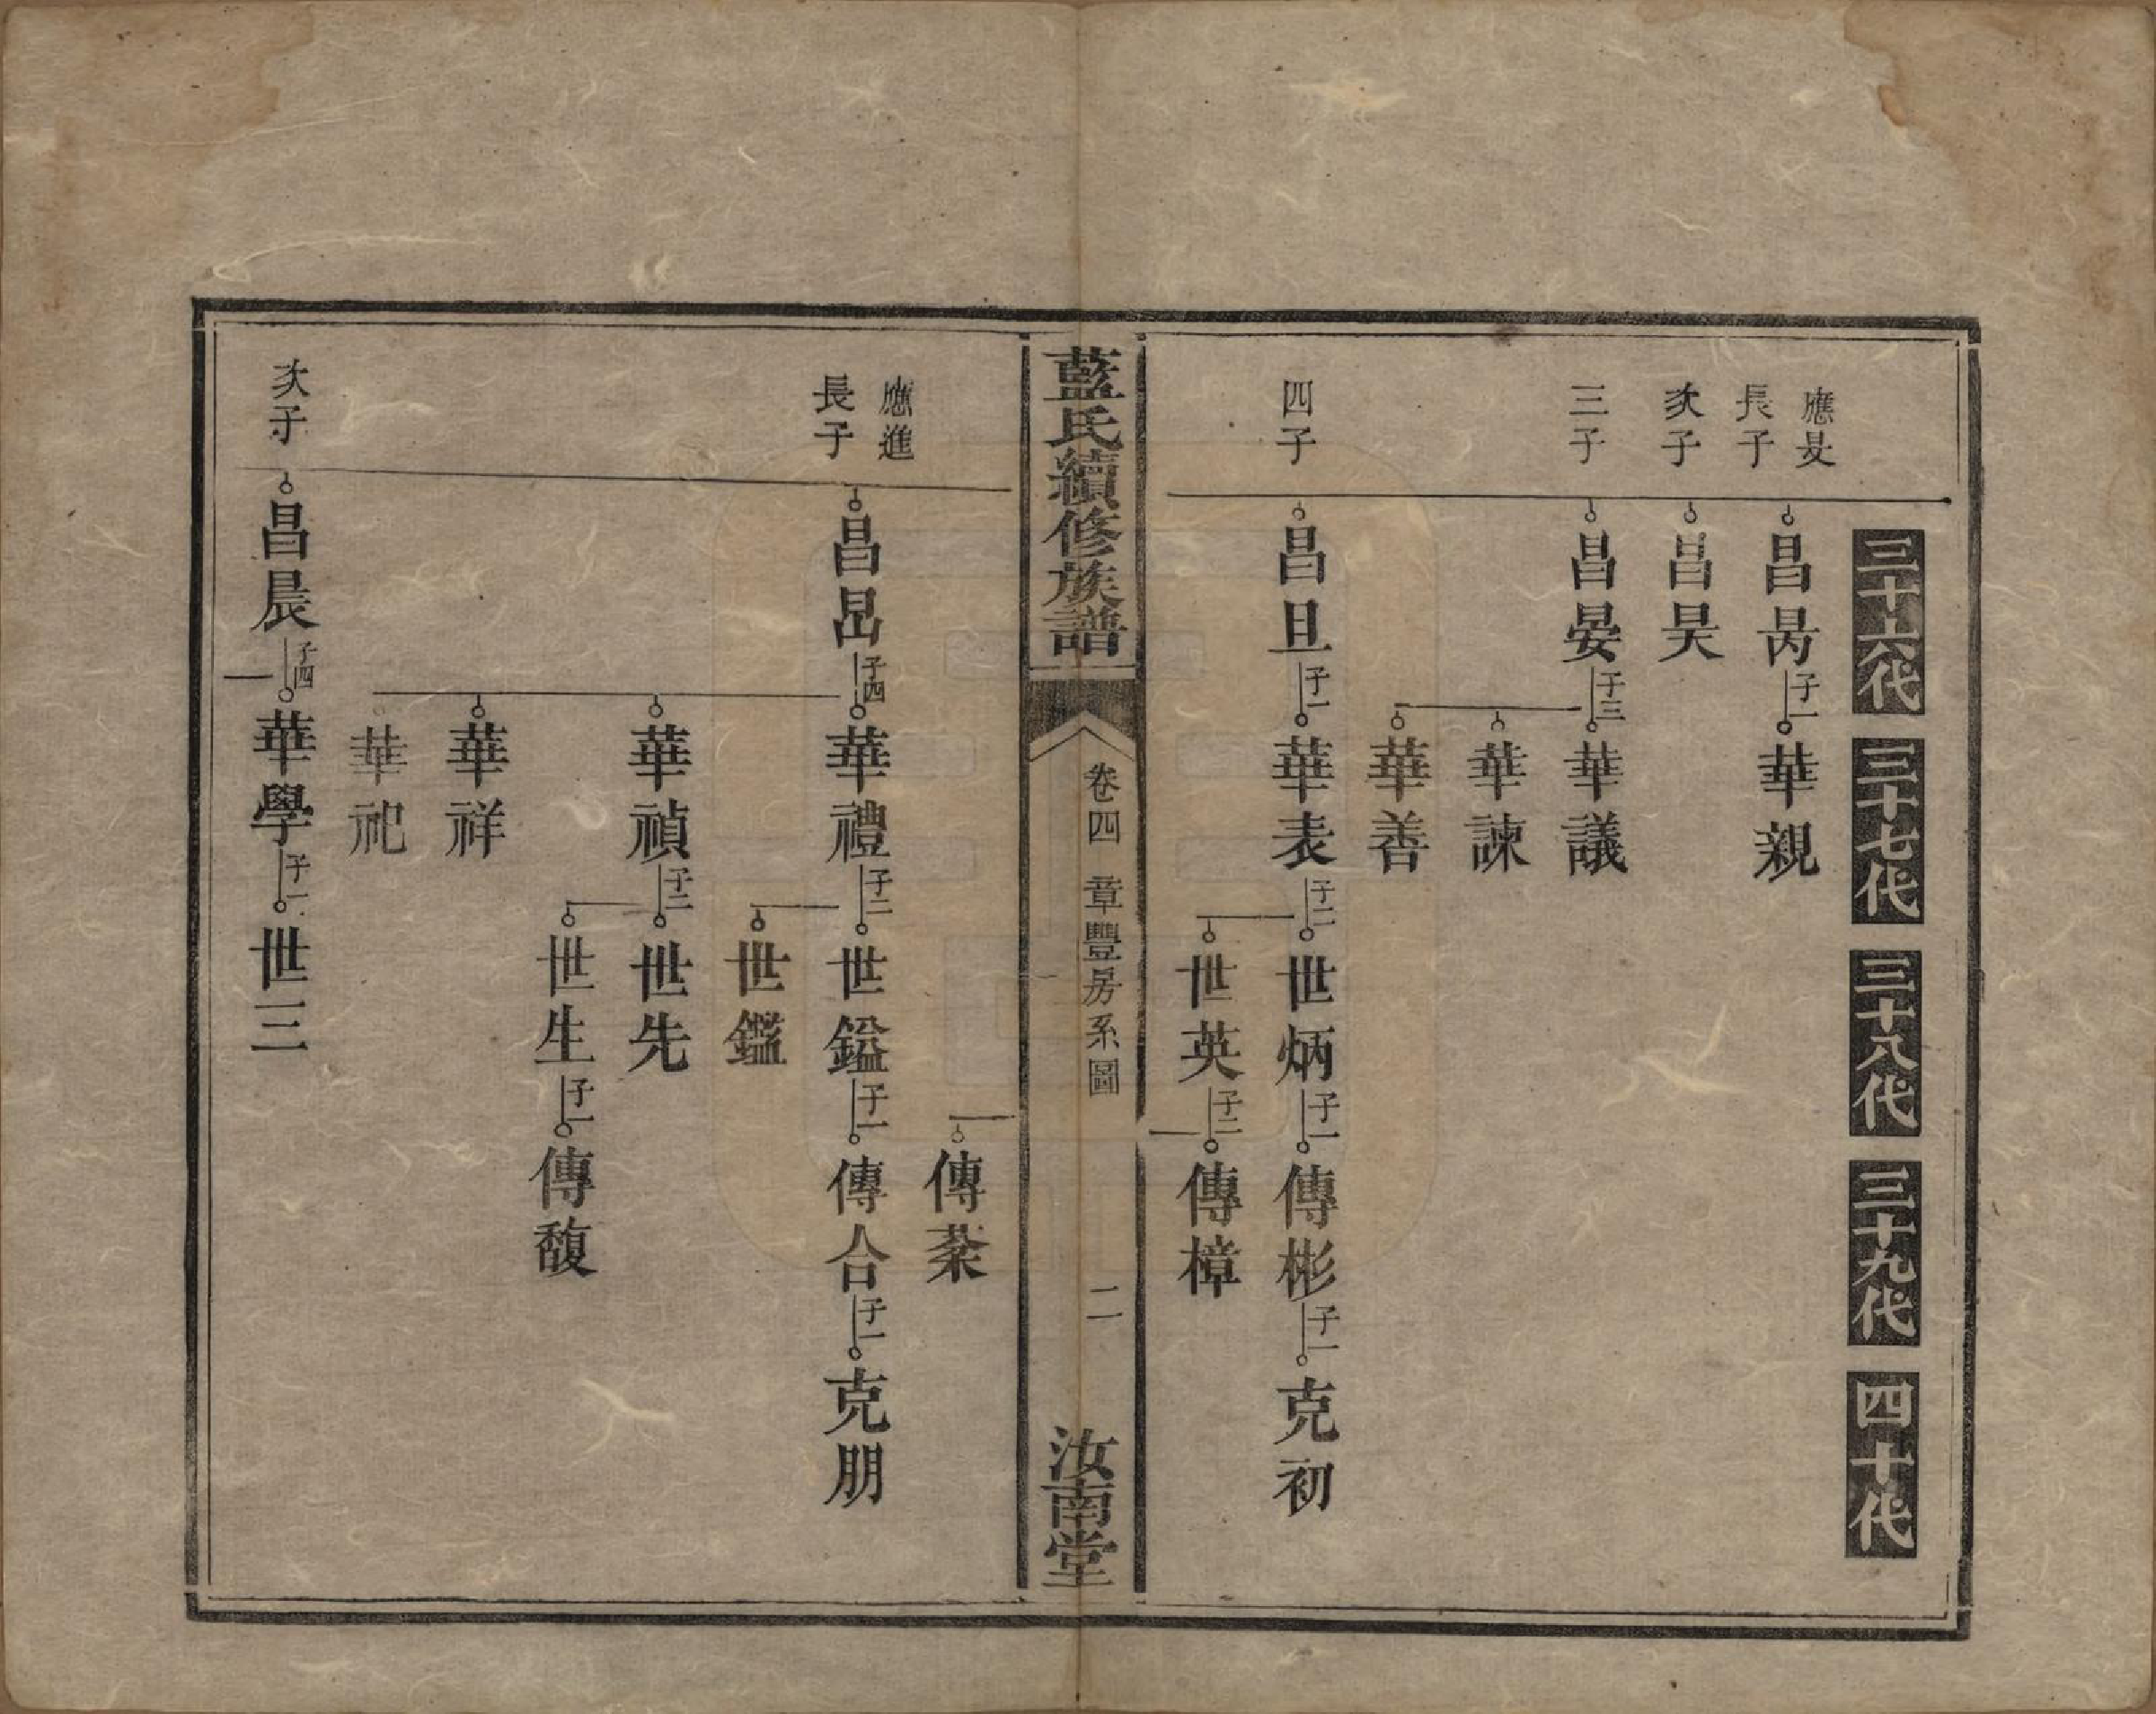 三十六代 三十七代 三十八代 三十九代 四十代
應旻
長子 昌昺 子一 華親
次子 昌昊
三子 昌晏 子三 華議
華諫
華善
四子 昌旦 子一 華表 子二 世炳 子一 傳彬 子一 克初
世英 子二 傳樟
藍氏續修族譜 卷四 章豐房系圖 二 汝南堂
傳棻
應進
長子 昌昂 子四 華禮 子二 世鎰 子一 傳合 子一 克朋
世鑑
華禎 子二 世先
世生 子一 傳馥
華祥
華祀
次子 昌晨 子四 華學 子一 世三